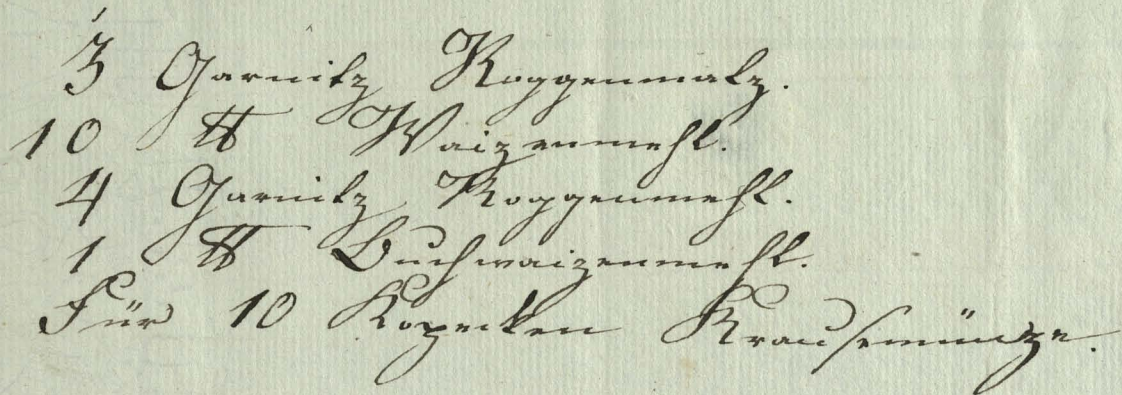 3 Garnitz Roggenmalz.
10 ℔ Waizenmehl.
4 Garnitz Roggenmehl.
1 ℔ Buchwaizenmehl.
Für 10 Kopecken Krausemünze.